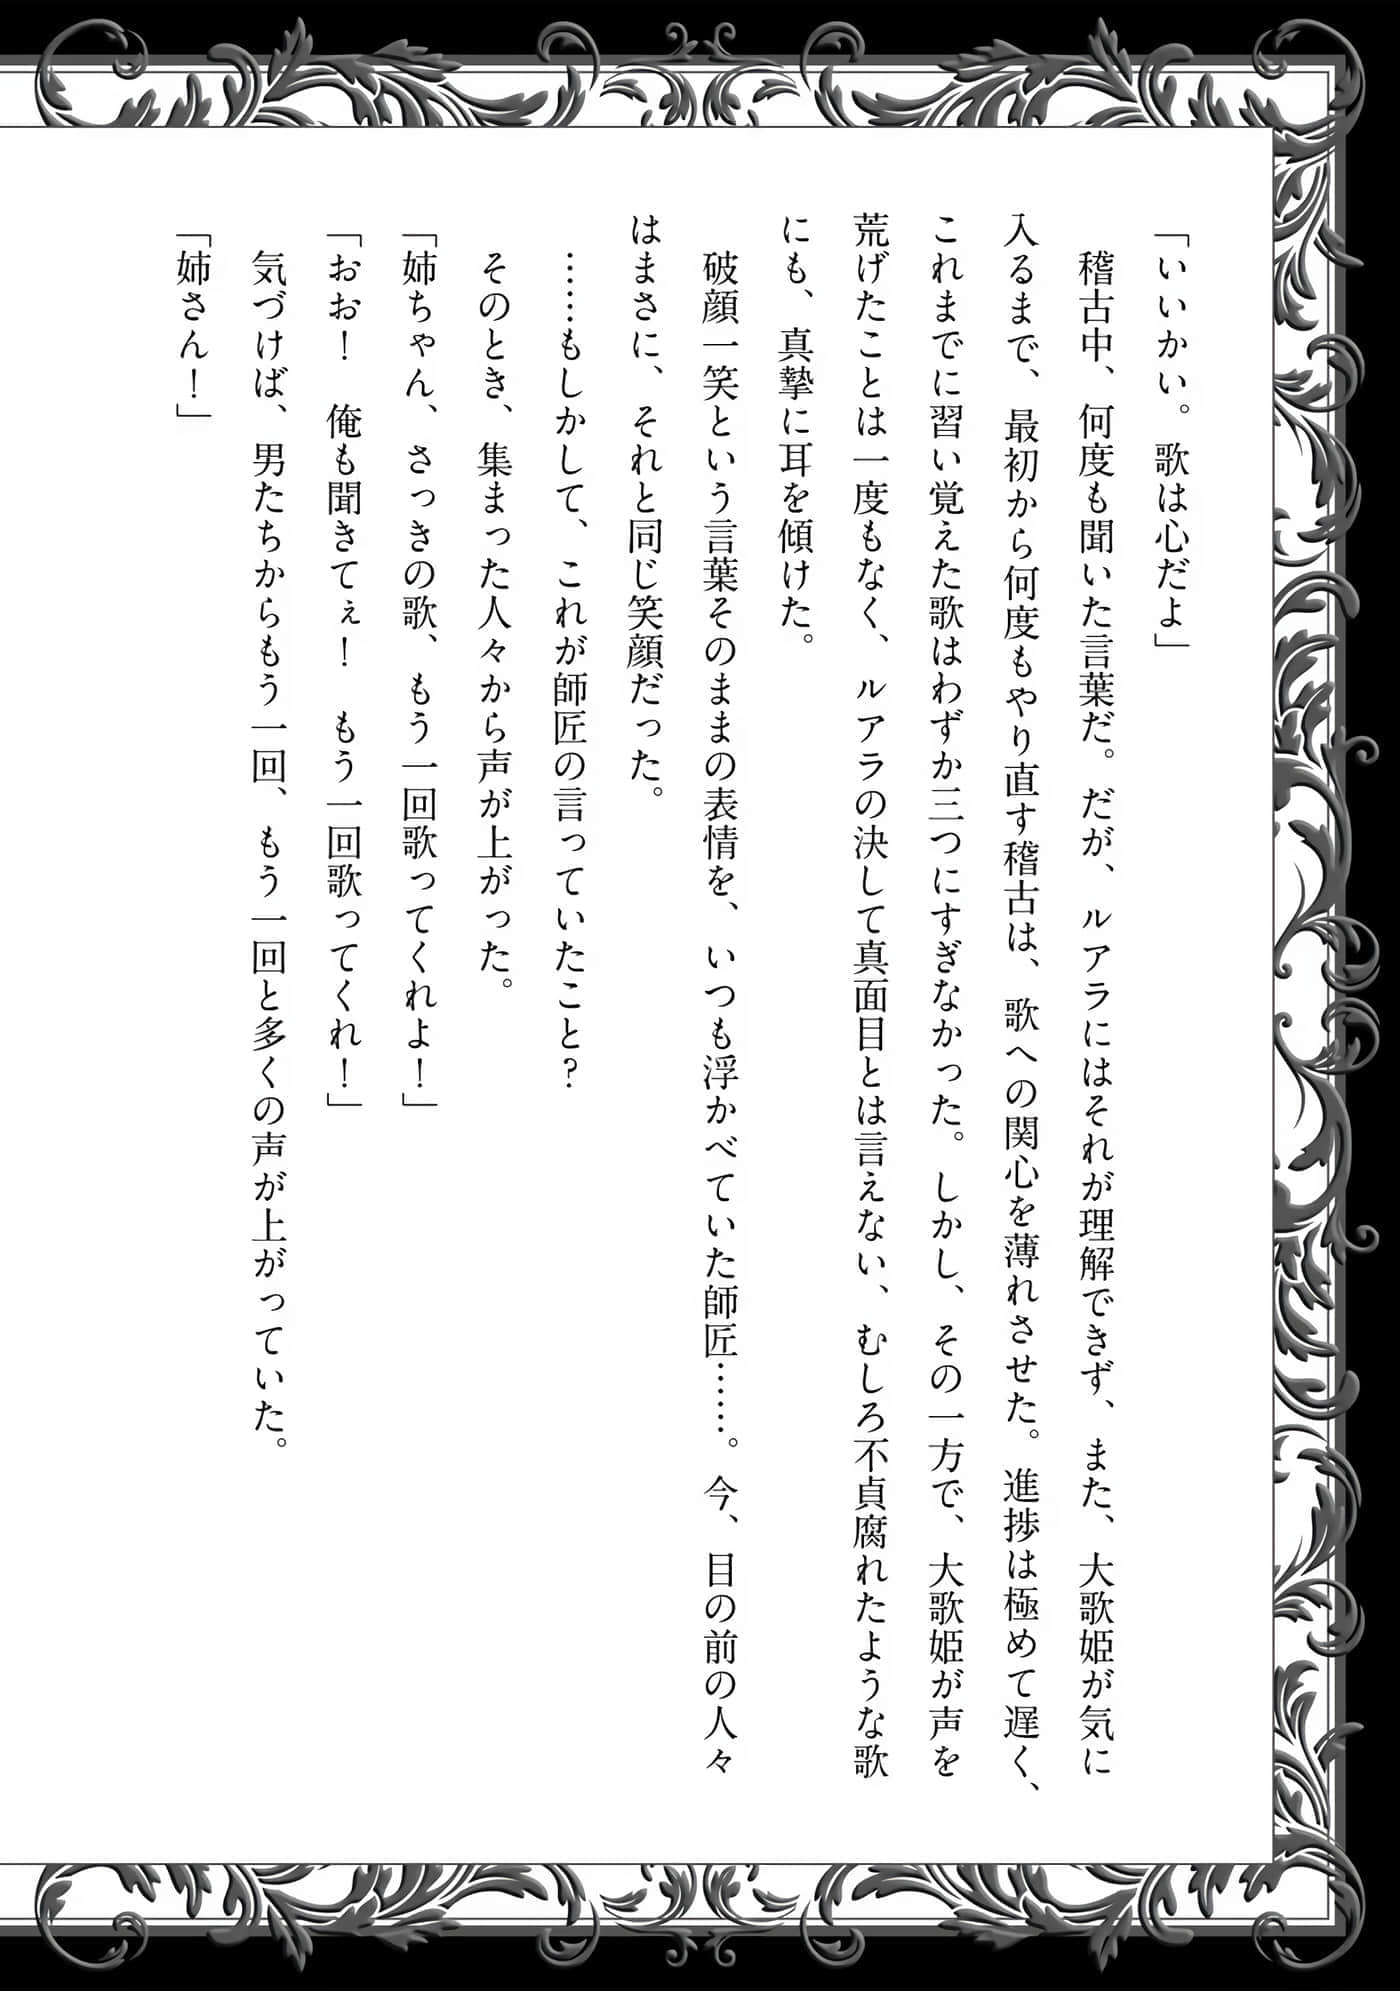 「いいかい。歌は心だよ」
　稽古中、何度も聞いた言葉だ。だが、ルアラにはそれが理解できず、また、大歌姫が気に
入るまで、最初から何度もやり直す稽古は、歌への関心を薄れさせた。進捗は極めて遅く、
これまでに習い覚えた歌はわずか三つにすぎなかった。しかし、その一方で、大歌姫が声を
荒げたことは一度もなく、ルアラの決して真面目とは言えない、むしろ不貞腐れたような歌
にも、真摯に耳を傾けた。
　破顔一笑という言葉そのままの表情を、いつも浮かべていた師匠……。今、目の前の人々
はまさに、それと同じ笑顔だった。
　……もしかして、これが師匠の言っていたこと？
　そのとき、集まった人々から声が上がった。
「姉ちゃん、さっきの歌、もう一回歌ってくれよ！」
「おお！　俺も聞きてぇ！　もう一回歌ってくれ！」
　気づけば、男たちからもう一回、もう一回と多くの声が上がっていた。
「姉さん！」